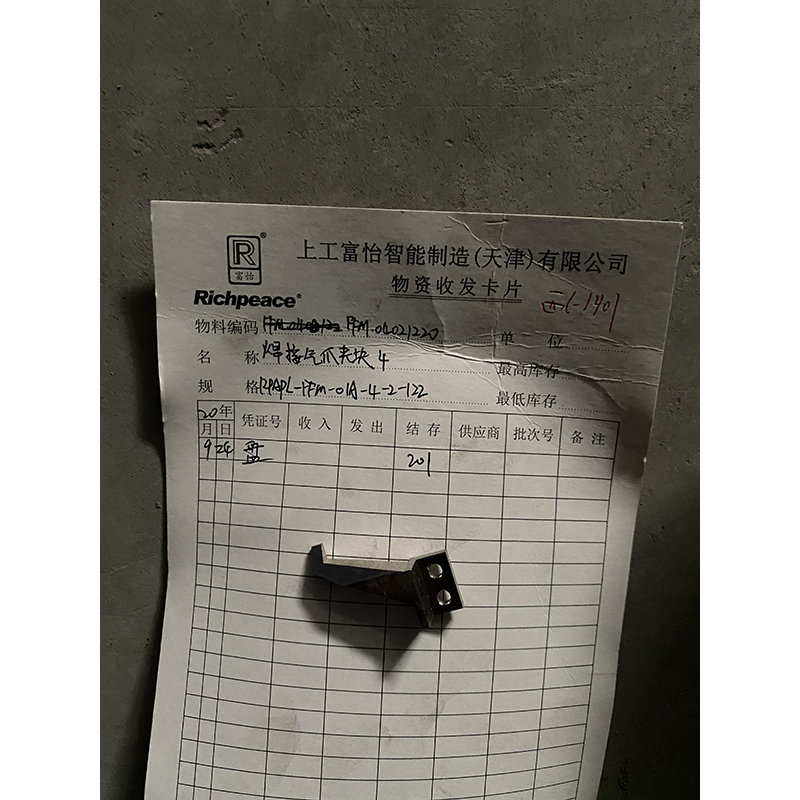 R®
富怡
Richpeace®
上工富怡智能制造(天津)有限公司
物资收发卡片
物料编码 FFM-04021220 单 位
名 称 焊接气爪夹块4 最高库存
规 格 RPAPL-FFM-01A-4-2-122 最低库存
20 年 凭证号 收入 发出 结存 供应商 批次号 备注
月 日
9 24 盘 201